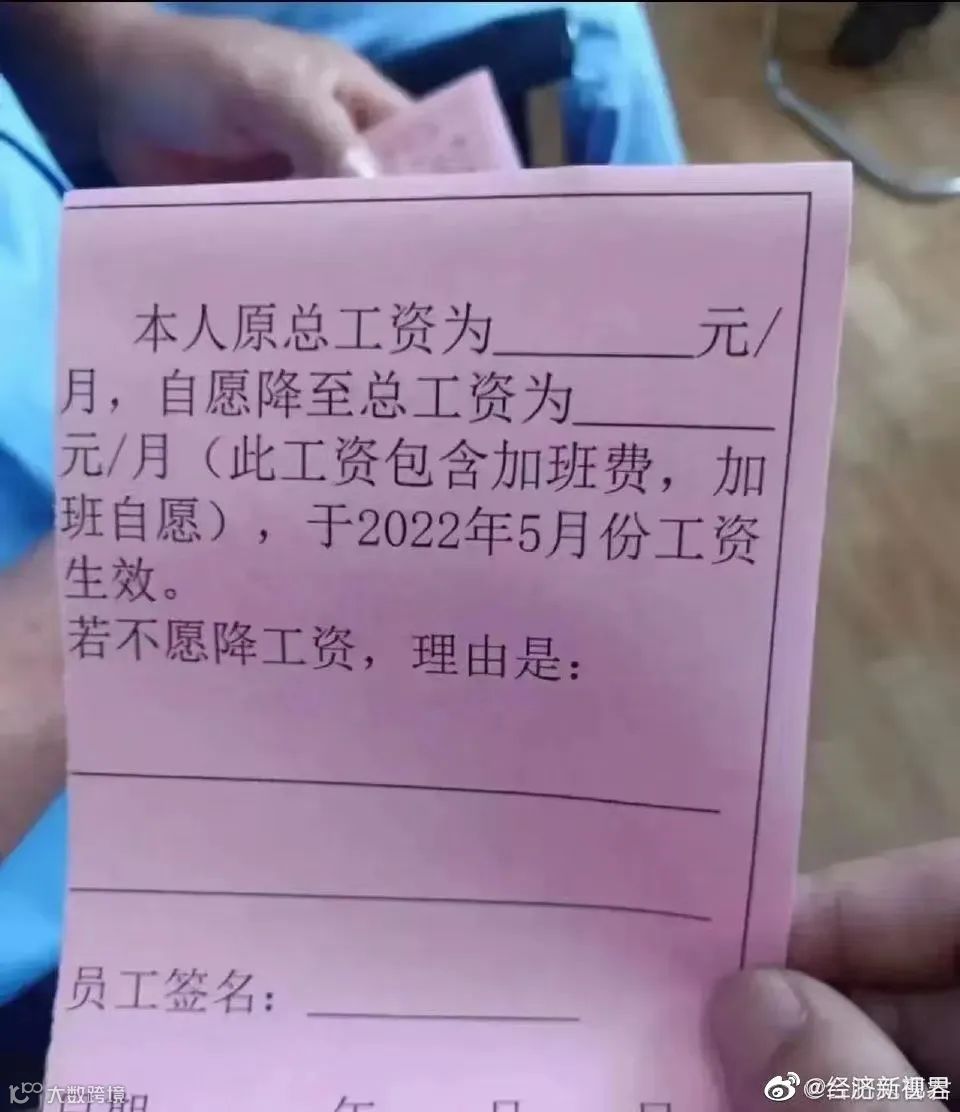 本人原总工资为________元/
月，自愿降至总工资为________
元/月（此工资包含加班费，加
班自愿），于2022年5月份工资
生效。
若不愿降工资，理由是：
员工签名：___________
日期 年 月 日
大数跨境
@经济新视界